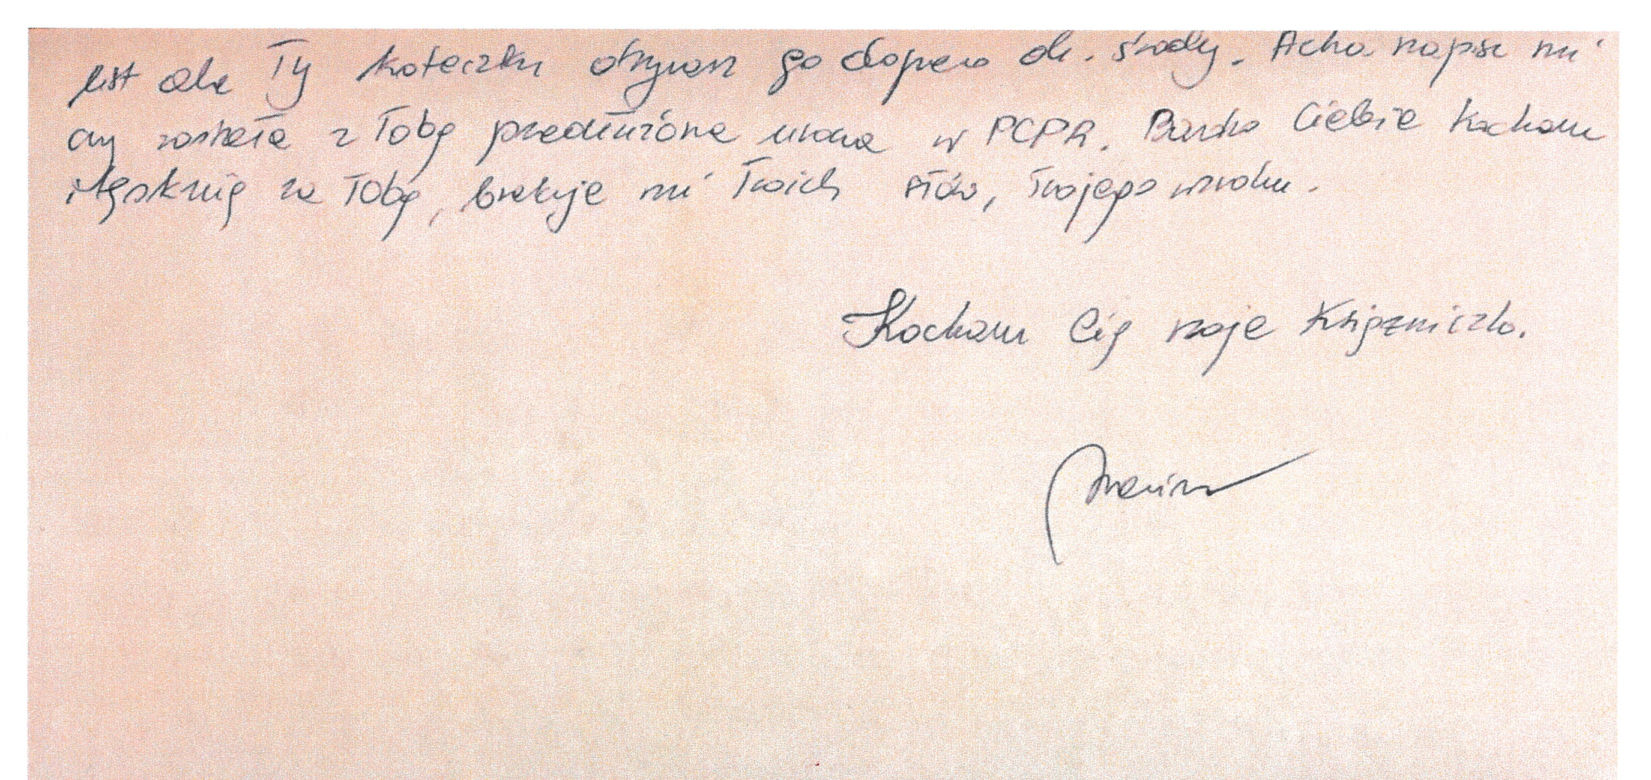 list ale Ty koteczku otrzymasz go dopiero ok. środy. Acha napisz mi
czy została z Tobą przedłużona umowa w PCPR. Bardzo Ciebie kocham
i tęsknię za Tobą, brakuje mi Twoich słów, Twojego wzroku.
Kocham Cię moja Księżniczko.